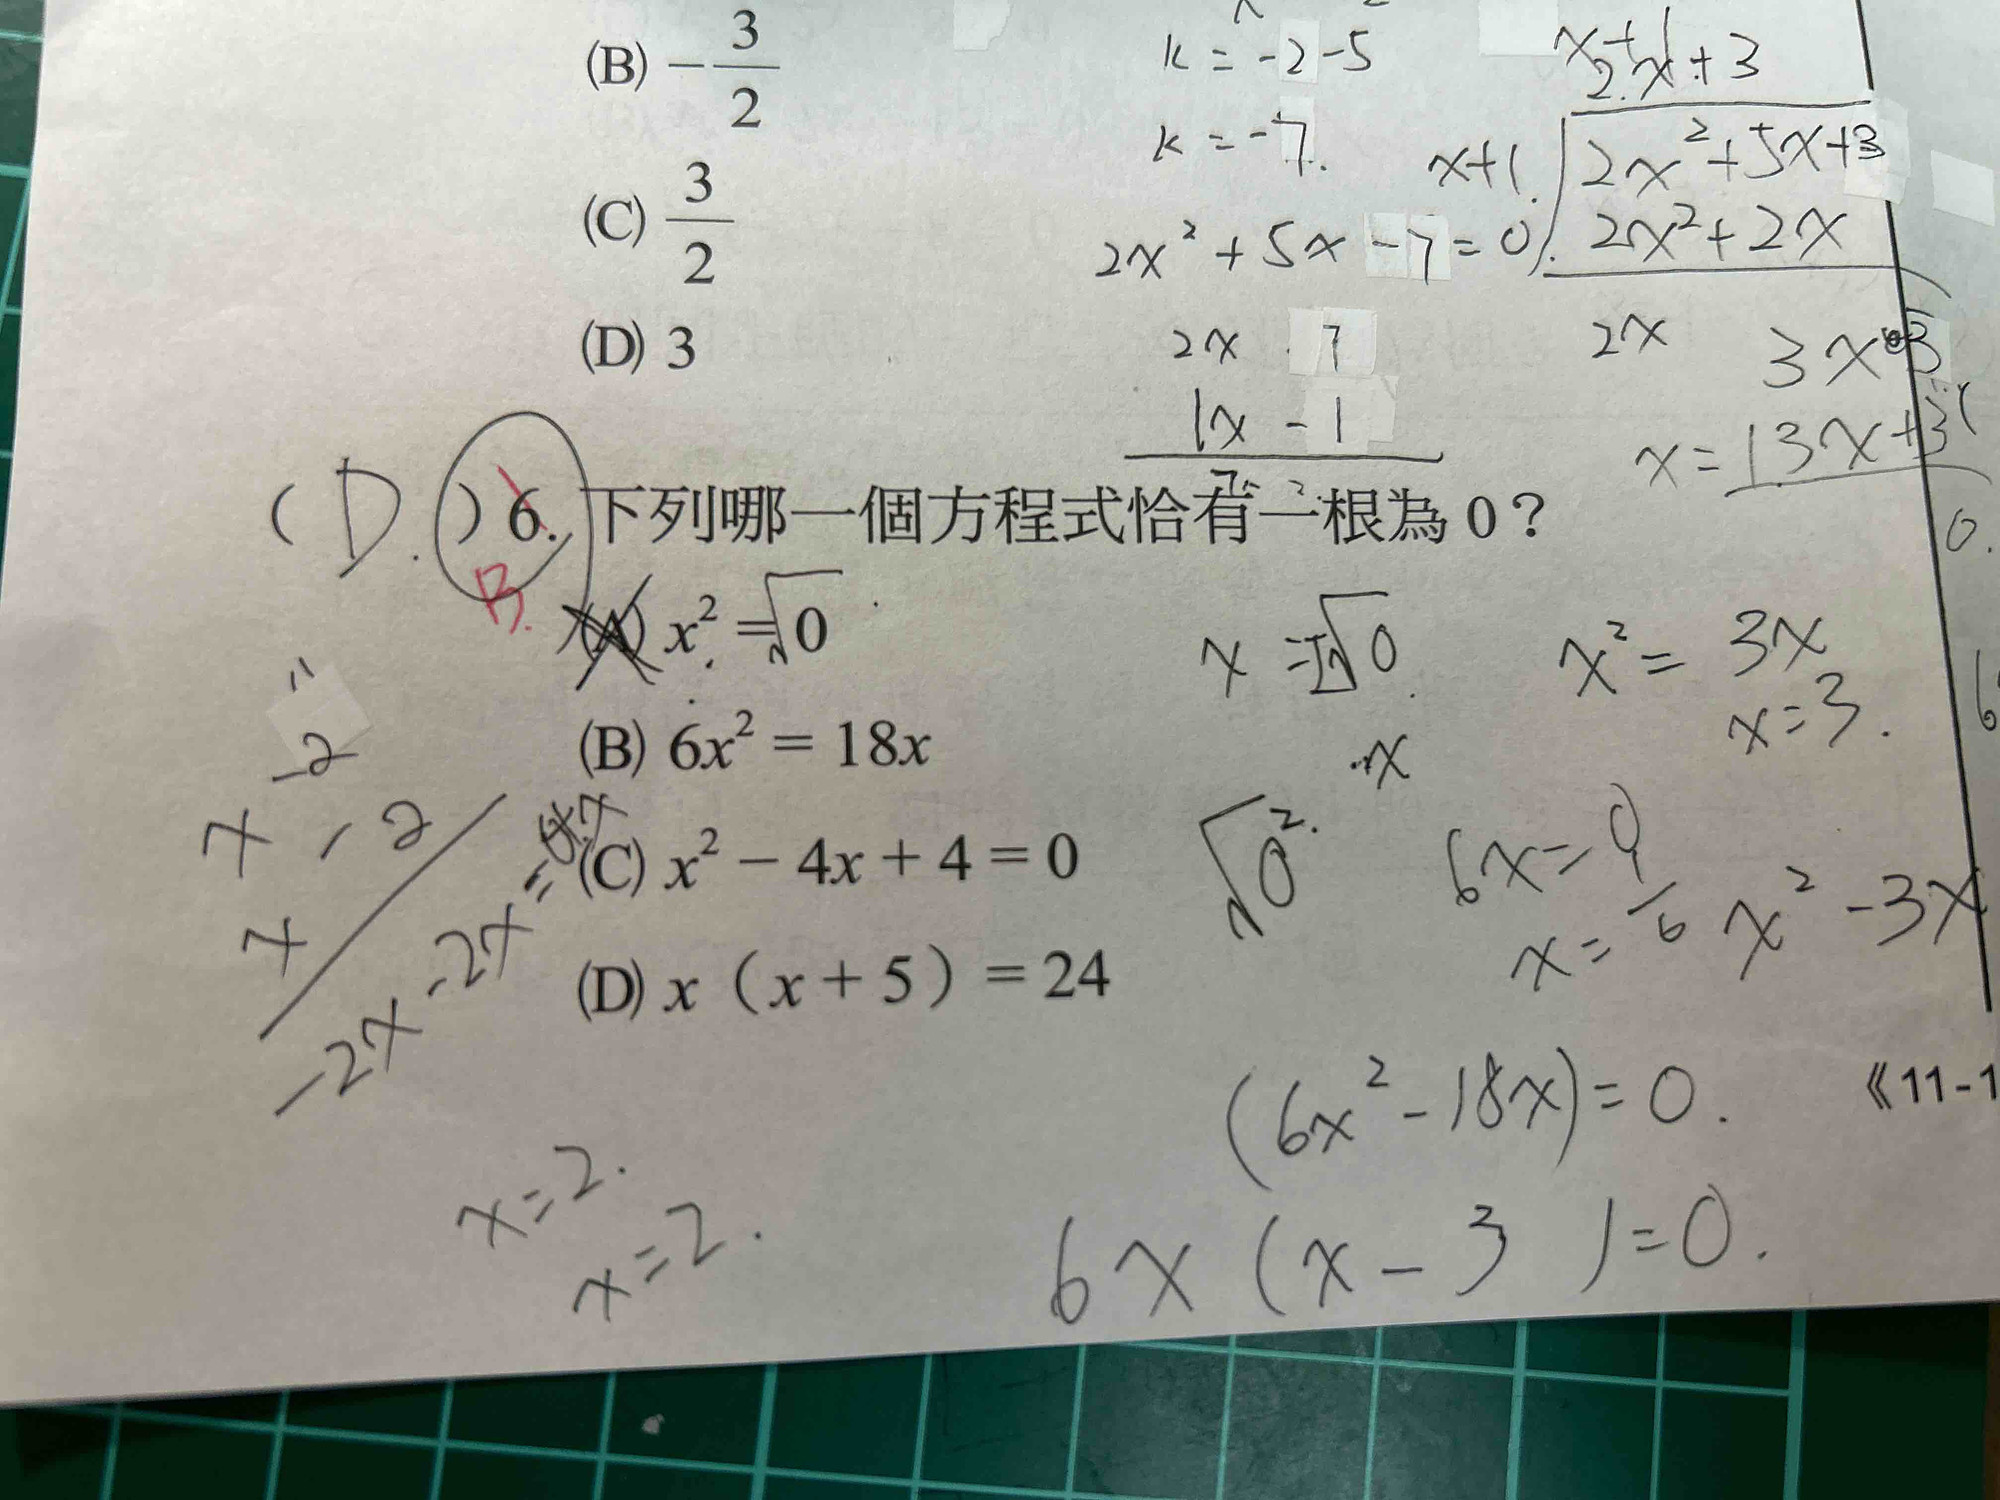 (B) -3/2
(C) 3/2
(D) 3
k = -2-5
k = -7.
2x² + 5x -7 = 0
2x 7
1x -1
x+1
2x+3
x+1 2x²+5x+3
2x²+2x
2x
3x
x=1
3x+3
0.
( D. ) 6. 下列哪一個方程式恰有一根為 0？
B.
(A) x² = √0
(B) 6x² = 18x
(C) x² − 4x + 4 = 0
(D) x（x + 5）= 24
x = ±√0
x
√0².
x² = 3x
x=3.
6x=0
x= 0/6
x²-3x
(6x²-18x)=0.
6x(x-3)=0.
-2
x -2
x
-2x-2x=
x=2.
x=2.
《11-1